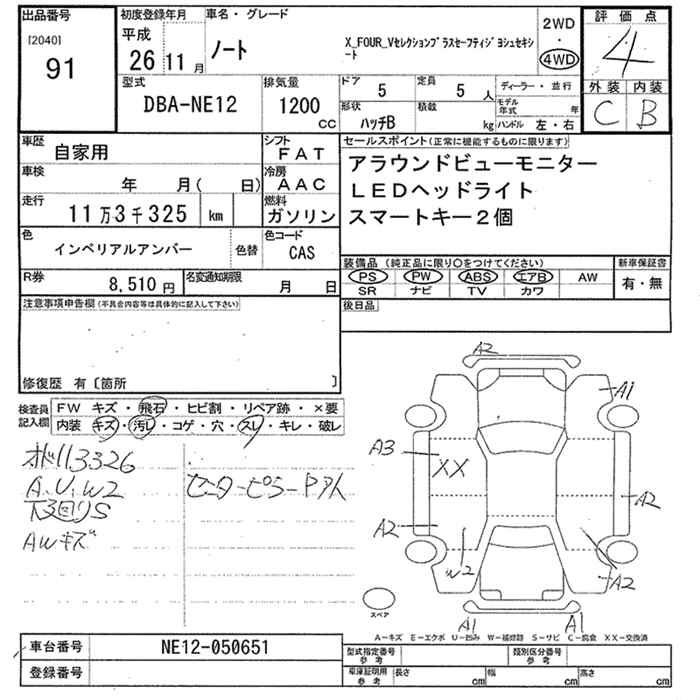 出品番号
[2040]
91
初度登録年月
平成
26 11 月
車名・グレード
ノート
X_FOUR_Vセレクションプラスセーフティジヨシュセキシ
ート
2WD
・
4WD
評価点
4
外装 内装
C B
型式
DBA-NE12
排気量
1200
CC
ドア
5
定員
5 人
形状
ハッチB
積載
kg
ディーラー・並行
モデル
年式 年
ハンドル 左・右
車歴
自家用
シフト
FAT
車検
年 月( 日)
冷房
AAC
走行
11万3千325 km
燃料
ガソリン
色
インペリアルアンバー
色替
色コード
CAS
R券
8,510 円
名変通知期限
月 日
セールスポイント(正常に機能するものに限ります)
アラウンドビューモニター
LEDヘッドライト
スマートキー2個
装備品(純正品に限り〇をつけてください)
PS PW ABS エアB AW
SR ナビ TV カワ
新車保証書
有・無
後日品
注意事項申告欄(不具合内容等は具体的に記入して下さい)
修復歴 有〔箇所 〕
検査員
記入欄
FW キズ・飛石・ヒビ割・リペア跡・×要
内装 キズ・汚レ・コゲ・穴・スレ・キレ・破レ
オド113326
A.U.W2
下回りS
AWキズ
センターピラードア人
A2
A1
A3
XX
A2
A2
W2
A2
A1
A1
スペア
A−キズ E−エクボ U−凹み W−補修跡 S−サビ C−腐食 XX−交換済
車台番号
NE12-050651
登録番号
型式指定番号
参考
類別区分番号
参考
車庫証明用
参考
長さ cm
幅 cm
高さ cm